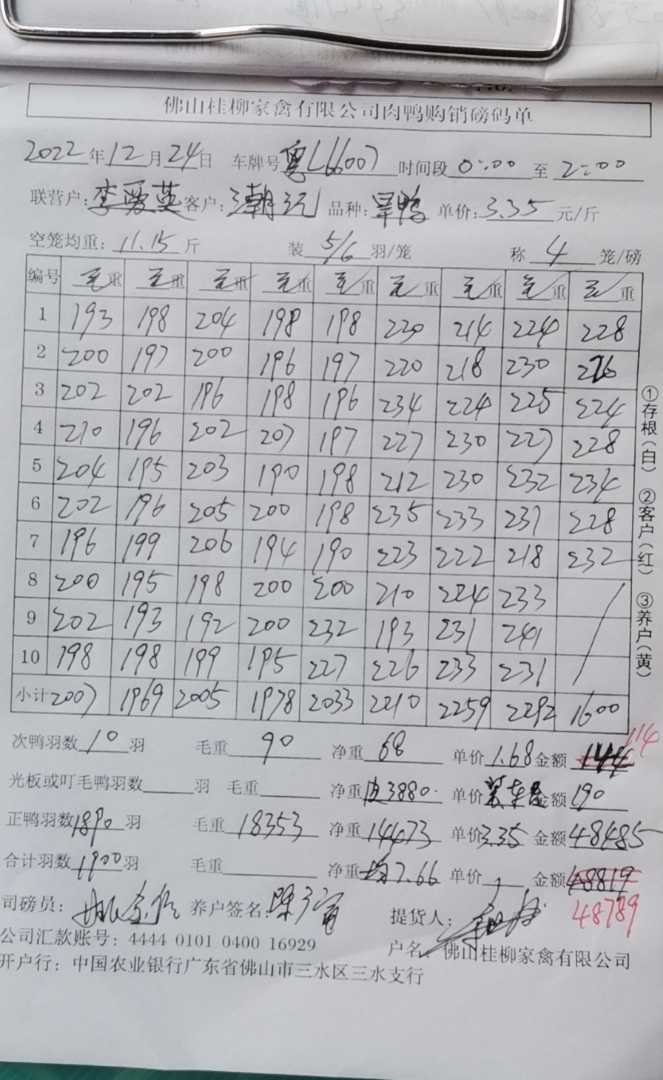 佛山桂柳家禽有限公司肉鸭购销磅码单
2022年12月24日 车牌号 粤L66007 时间段 0:00 至 2:00
联营户:李爱英 客户:潮记 品种:旱鸭 单价:3.35元/斤
空笼均重:11.15斤 装5/6羽/笼 称4笼/磅
编号 毛重 毛重 毛重 毛重 毛重 毛重 毛重 毛重 毛重
1 193 198 204 198 198 220 214 224 228
2 200 197 200 196 197 220 218 230 226
3 202 202 196 198 196 234 224 225 224
4 210 196 202 207 197 227 230 227 228
5 204 195 203 190 198 212 230 232 234
6 202 196 205 200 198 235 233 231 228
7 196 199 206 194 190 223 222 218 232
8 200 195 198 200 200 210 224 233
9 202 193 192 200 232 193 231 241
10 198 198 199 195 227 226 233 231
小计 2007 1969 2005 1978 2033 2210 2259 2292 1600
①存根(白) ②客户(红) ③养户(黄)
次鸭羽数10羽 毛重90 净重68 单价1.68 金额144 114
光板或叮毛鸭羽数 羽 毛重 净重皮3880 单价装车费 金额190
正鸭羽数1890羽 毛重18353 净重14473 单价3.35 金额48485
合计羽数1900羽 毛重 净重均7.66 单价 金额48819
48789
司磅员: 养户签名: 提货人:
公司汇款账号:4444 0101 0400 16929 户名:佛山桂柳家禽有限公司
开户行:中国农业银行广东省佛山市三水区三水支行